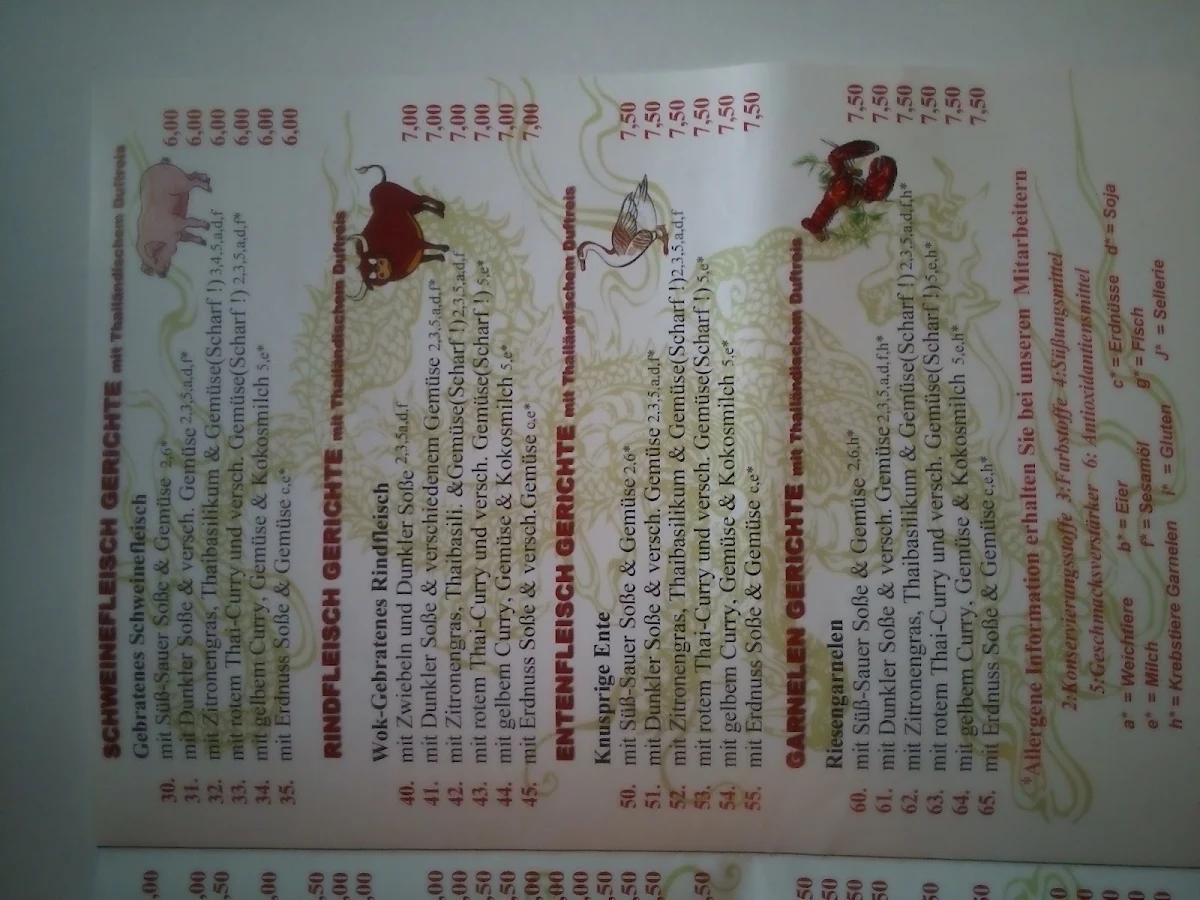 SCHWEINEFLEISCH GERICHTE mit Thailändischem Duftreis
Gebratenes Schweinefleisch
30. mit Süß-Sauer Soße & Gemüse 2,6* 6,00
31. mit Dunkler Soße & versch. Gemüse 2,3,5,a,d,f* 6,00
32. mit Zitronengras, Thaibasilikum & Gemüse(Scharf !) 3,4,5,a,d,f 6,00
33. mit rotem Thai-Curry und versch. Gemüse(Scharf !) 2,3,5,a,d,f* 6,00
34. mit gelbem Curry, Gemüse & Kokosmilch 5,e* 6,00
35. mit Erdnuss Soße & Gemüse c,e* 6,00
RINDFLEISCH GERICHTE mit Thailändischem Duftreis
Wok-Gebratenes Rindfleisch
40. mit Zwiebeln und Dunkler Soße 2,3,5a,d,f 7,00
41. mit Dunkler Soße & verschiedenem Gemüse 2,3,5,a,d,f* 7,00
42. mit Zitronengras, Thaibasili. &Gemüse(Scharf !)2,3,5,a,d,f 7,00
43. mit rotem Thai-Curry und versch. Gemüse(Scharf !) 5,e* 7,00
44. mit gelbem Curry, Gemüse & Kokosmilch 5,e* 7,00
45. mit Erdnuss Soße & versch.Gemüse c,e* 7,00
ENTENFLEISCH GERICHTE mit Thailändischem Duftreis
Knusprige Ente
50. mit Süß-Sauer Soße & Gemüse 2,6* 7,50
51. mit Dunkler Soße & versch. Gemüse 2,3,5,a,d,f* 7,50
52. mit Zitronengras, Thaibasilikum & Gemüse(Scharf !)2,3,5,a,d,f 7,50
53. mit rotem Thai-Curry und versch. Gemüse(Scharf !) 5,e* 7,50
54. mit gelbem Curry, Gemüse & Kokosmilch 5,e* 7,50
55. mit Erdnuss Soße & Gemüse c,e* 7,50
GARNELEN GERICHTE mit Thailändischem Duftreis
Riesengarnelen
60. mit Süß-Sauer Soße & Gemüse 2,6,h* 7,50
61. mit Dunkler Soße & versch. Gemüse 2,3,5,a,d,f,h* 7,50
62. mit Zitronengras, Thaibasilikum & Gemüse(Scharf !) 2,3,5,a,d,f,h* 7,50
63. mit rotem Thai-Curry und versch. Gemüse(Scharf !) 5,e,h* 7,50
64. mit gelbem Curry, Gemüse & Kokosmilch 5,e,h* 7,50
65. mit Erdnuss Soße & Gemüse c,e,h* 7,50
*Allergene Information erhalten Sie bei unseren Mitarbeitern
2:Konservierungsstoffe 3:Farbstoffe 4:Süßungsmittel
5:Geschmacksverstärker 6: Antioxidantiensmittel
a* = Weichtiere b* = Eier c* = Erdnüsse d* = Soja
e* = Milch f* = Sesamöl g* = Fisch
h* = Krebstiere Garnelen i* = Gluten J* = Sellerie